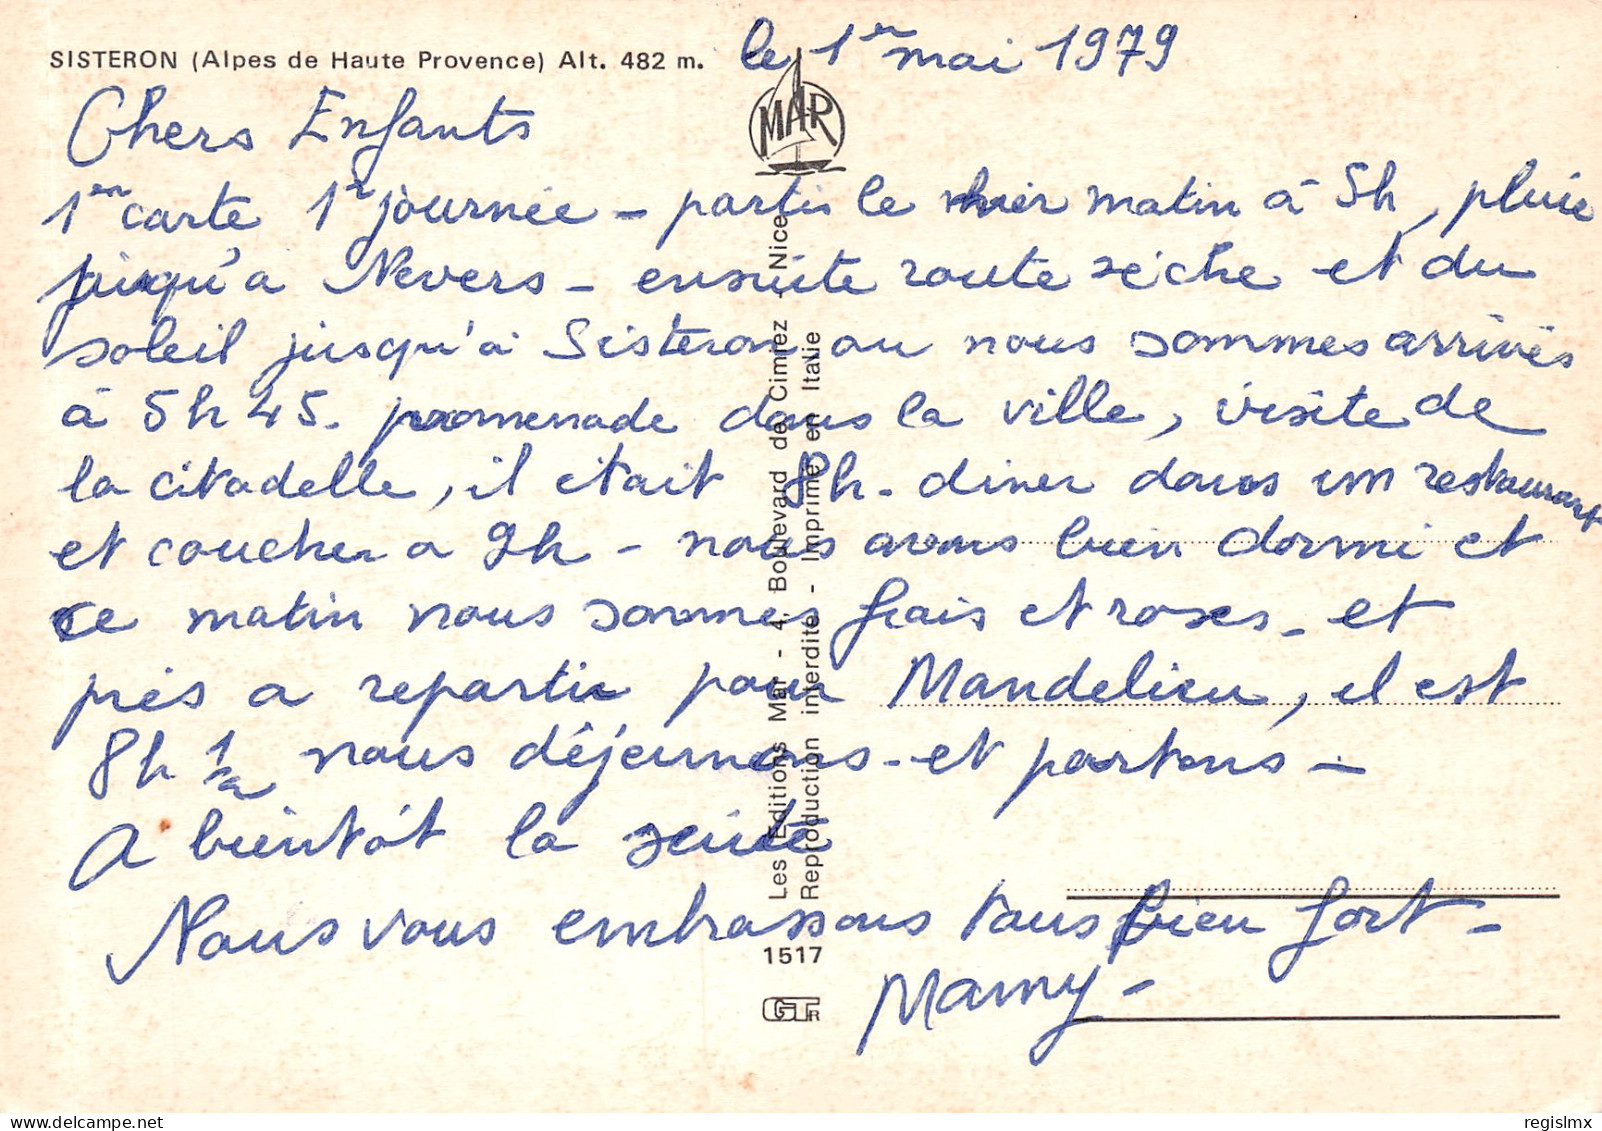 SISTERON (Alpes de Haute Provence) Alt. 482 m.
le 1er mai 1979
MAR
Chers Enfants
1er carte 1r journée - partis le hier matin à 5h, pluie
jusqu'a Nevers - ensuite route séche et du
soleil jusqu'à Sisteron ou nous sommes arrivés
à 5h 45. promenade dans la ville, visite de
la citadelle, il était 8h. diner dans un restaurant
et coucher a 9h - nous avons bien dormi et
ce matin nous sommes frais et roses - et
près a repartir pour Mandelieu, il est
8h 1/2 nous déjeunons - et partons -
A bientôt la suite
Nous vous embrassons tous bien fort -
Mamy -
Les Editions Mar - 4, Boulevard de Cimiez - Nice
Reproduction interdite - Imprimé en Italie
1517
GTR
regislmx